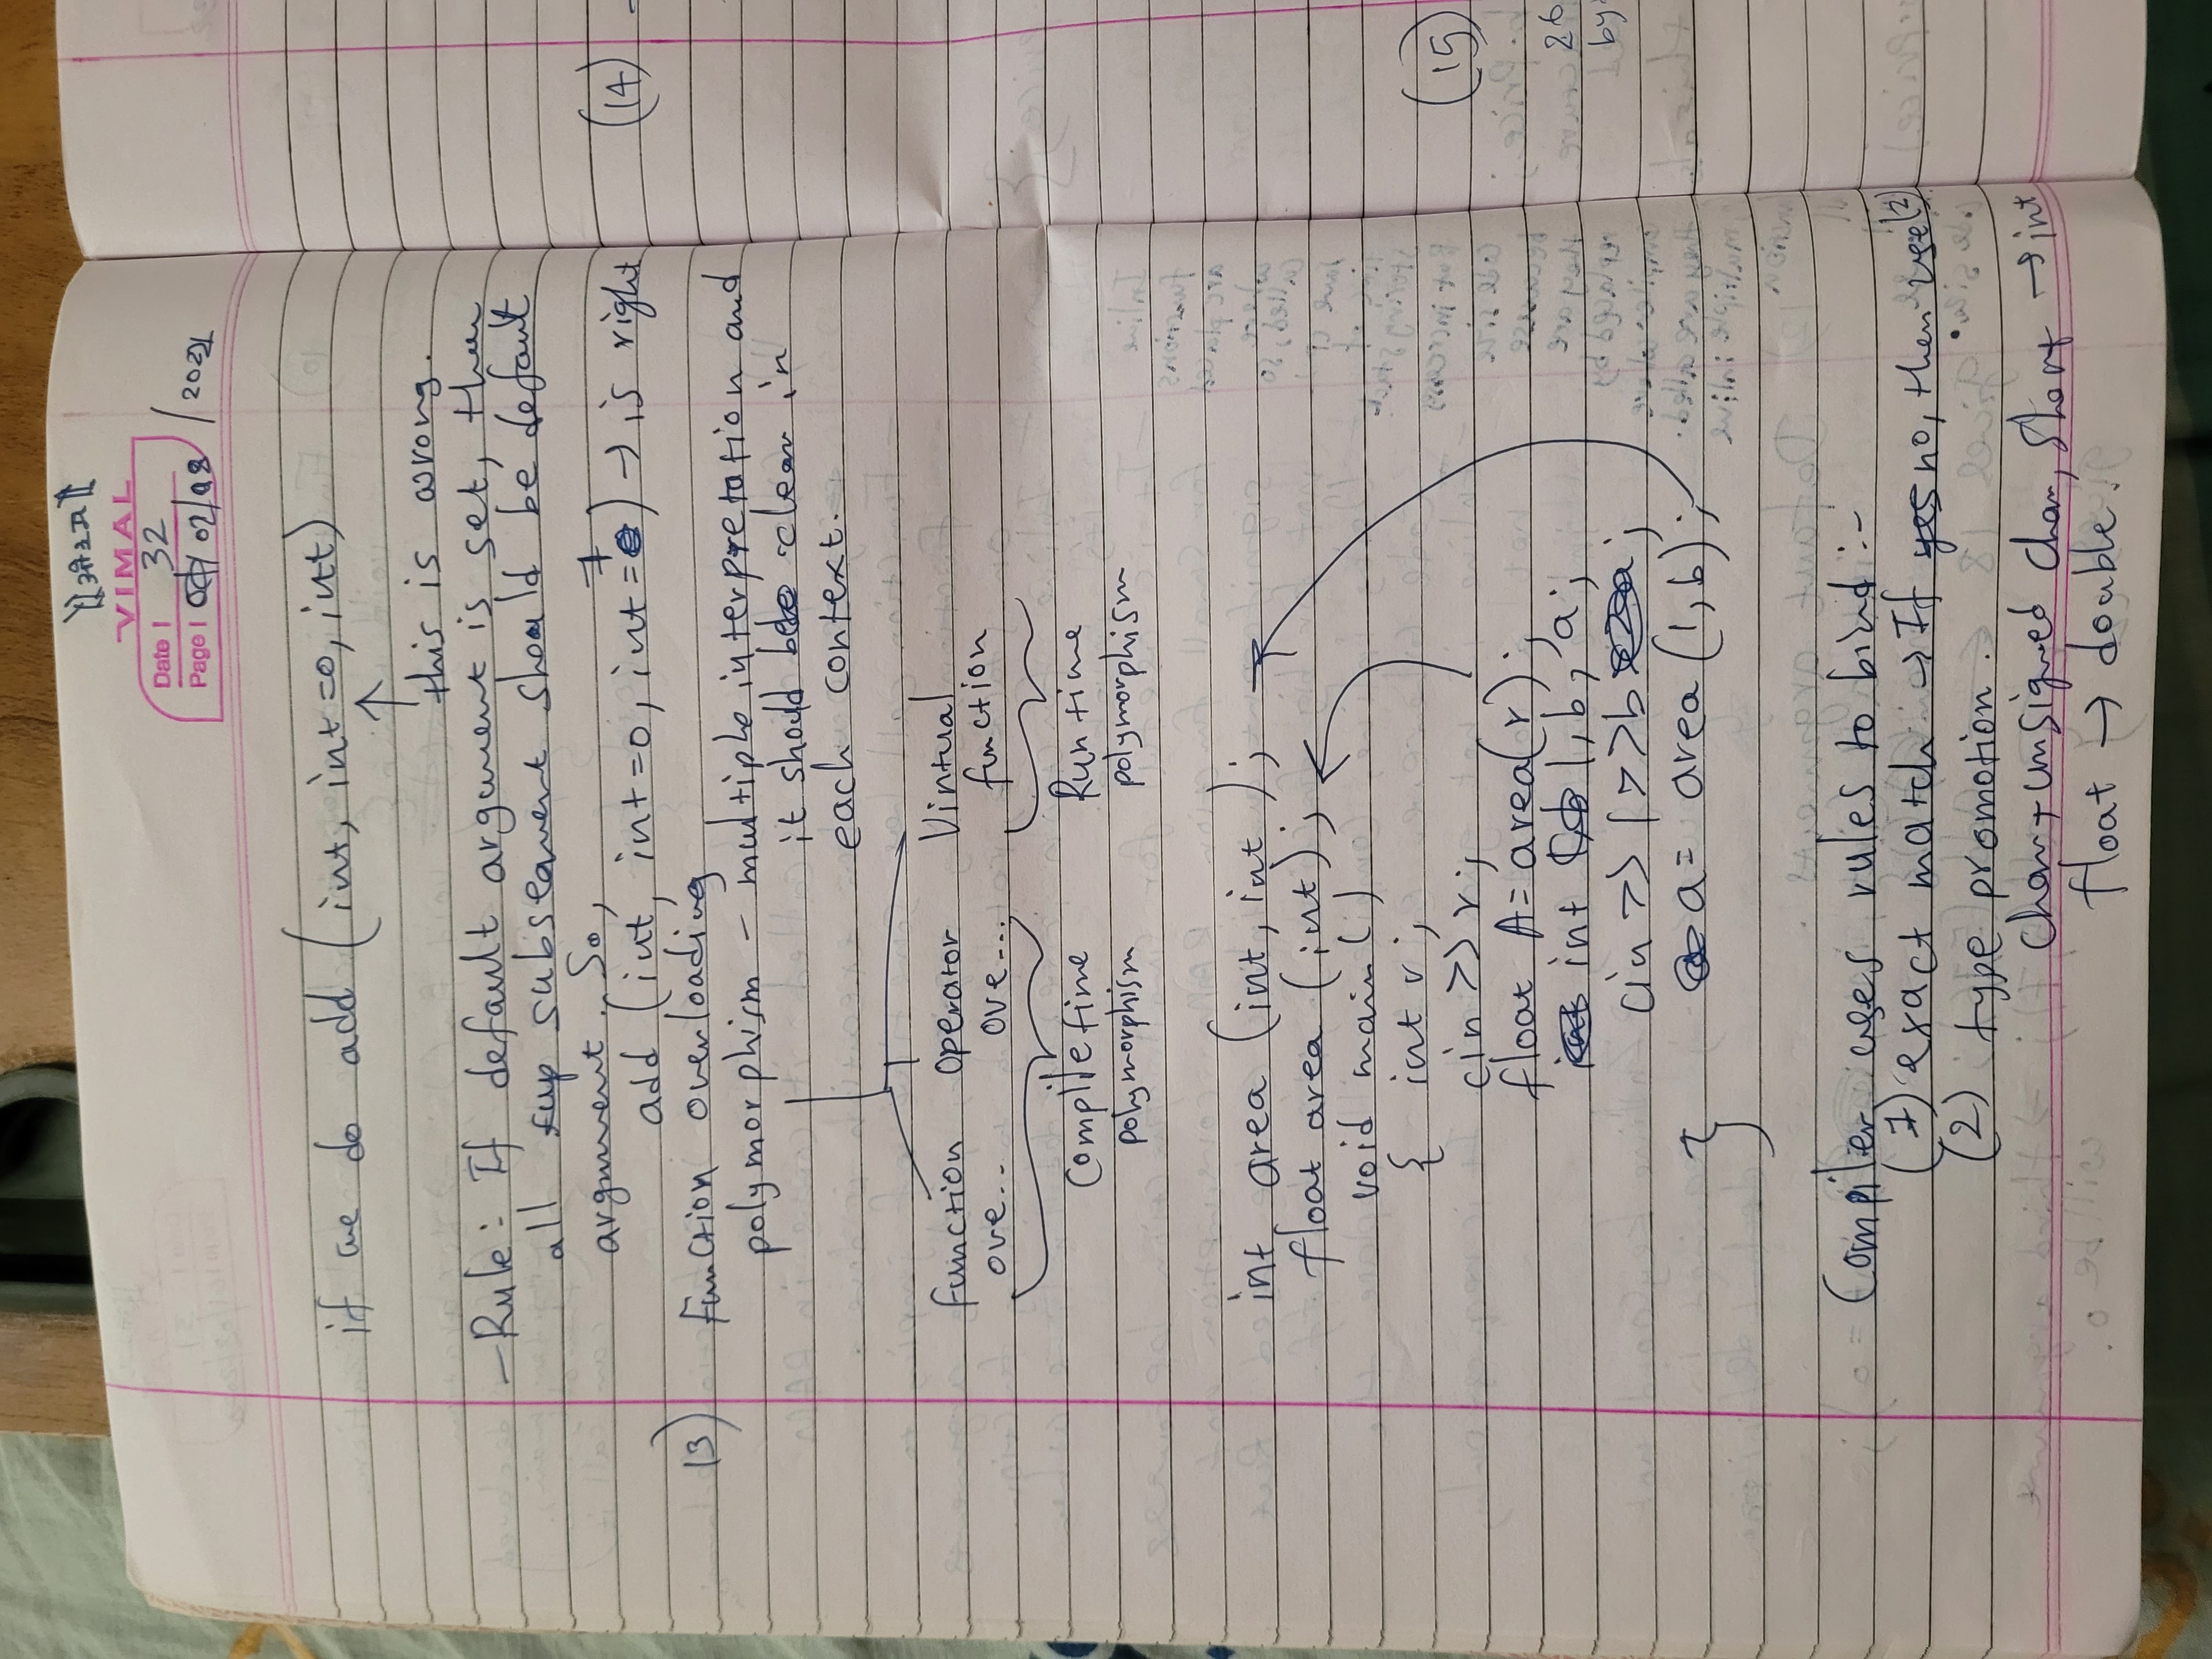 ॥ओ३म॥
VIMAL
Date | 32
Page | 02/08/2022
if we do add (int, int=0, int)
↑
this is wrong.
– Rule: If default argument is set, then
all subsequent should be defaut
argument. So,
add (int, int=0, int=7) → is right
13) Function overloading
polymorphism – multiple interpretation and
it should be clear in
each context.
function operator Virtual
ove.. ove... function
Compile time Run time
polymorphism polymorphism
int area (int, int);
float area (int);
void main()
{ int r;
cin >> r;
float A = area(r);
int l, b, a;
cin >> l >> b;
a = area (l, b);
}
Compiler uses rules to bind :-
(1) exact match → If no, then use (2)
(2) type promotion.
char, unsigned char, short → int
float → double.
(14)
(15)
26
by